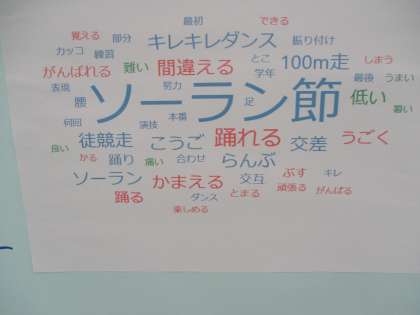 最初 できる
覚える 部分 キレキレダンス 振り付け
カッコ 練習 とこ 100m走 しまう
がんばれる 難い 間違える 学年 最後 うまい
表現 努力
腰 ソーラン節 足 低い
暑い
何回 演技 本番
徒競走 こうご 踊れる 交差 うごく
良い かる 踊り 痛い 合わせ らんぶ
ソーラン かまえる 交互 ぶす キレ
踊る ダンス とまる 頑張る がんばる
楽しめる